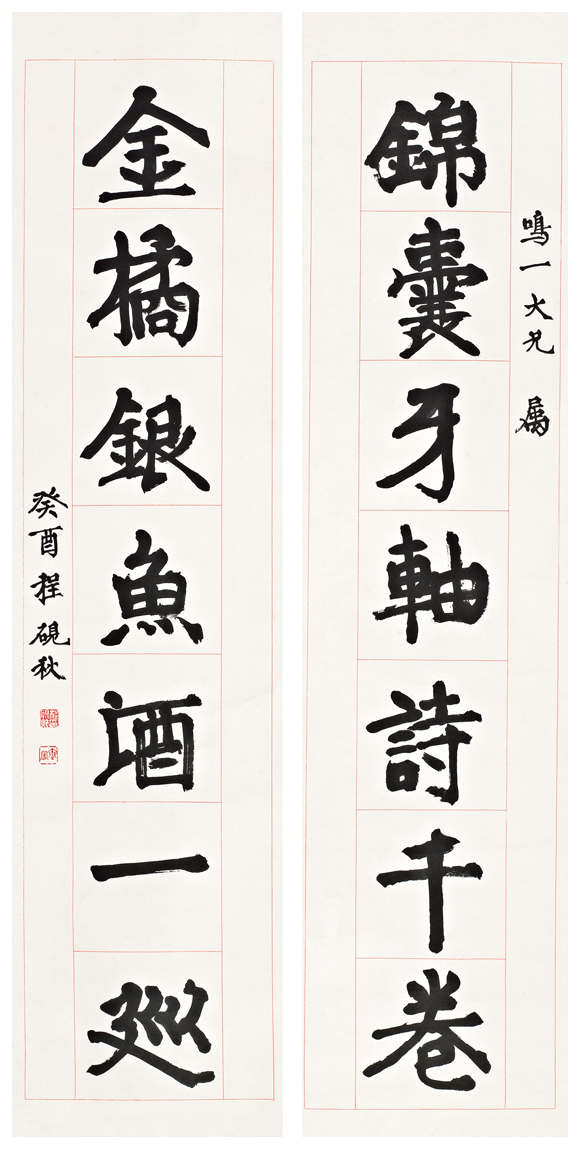 鳴一大兄 属
錦囊牙軸詩千卷
金橘銀魚酒一廵
癸酉 程硯秋